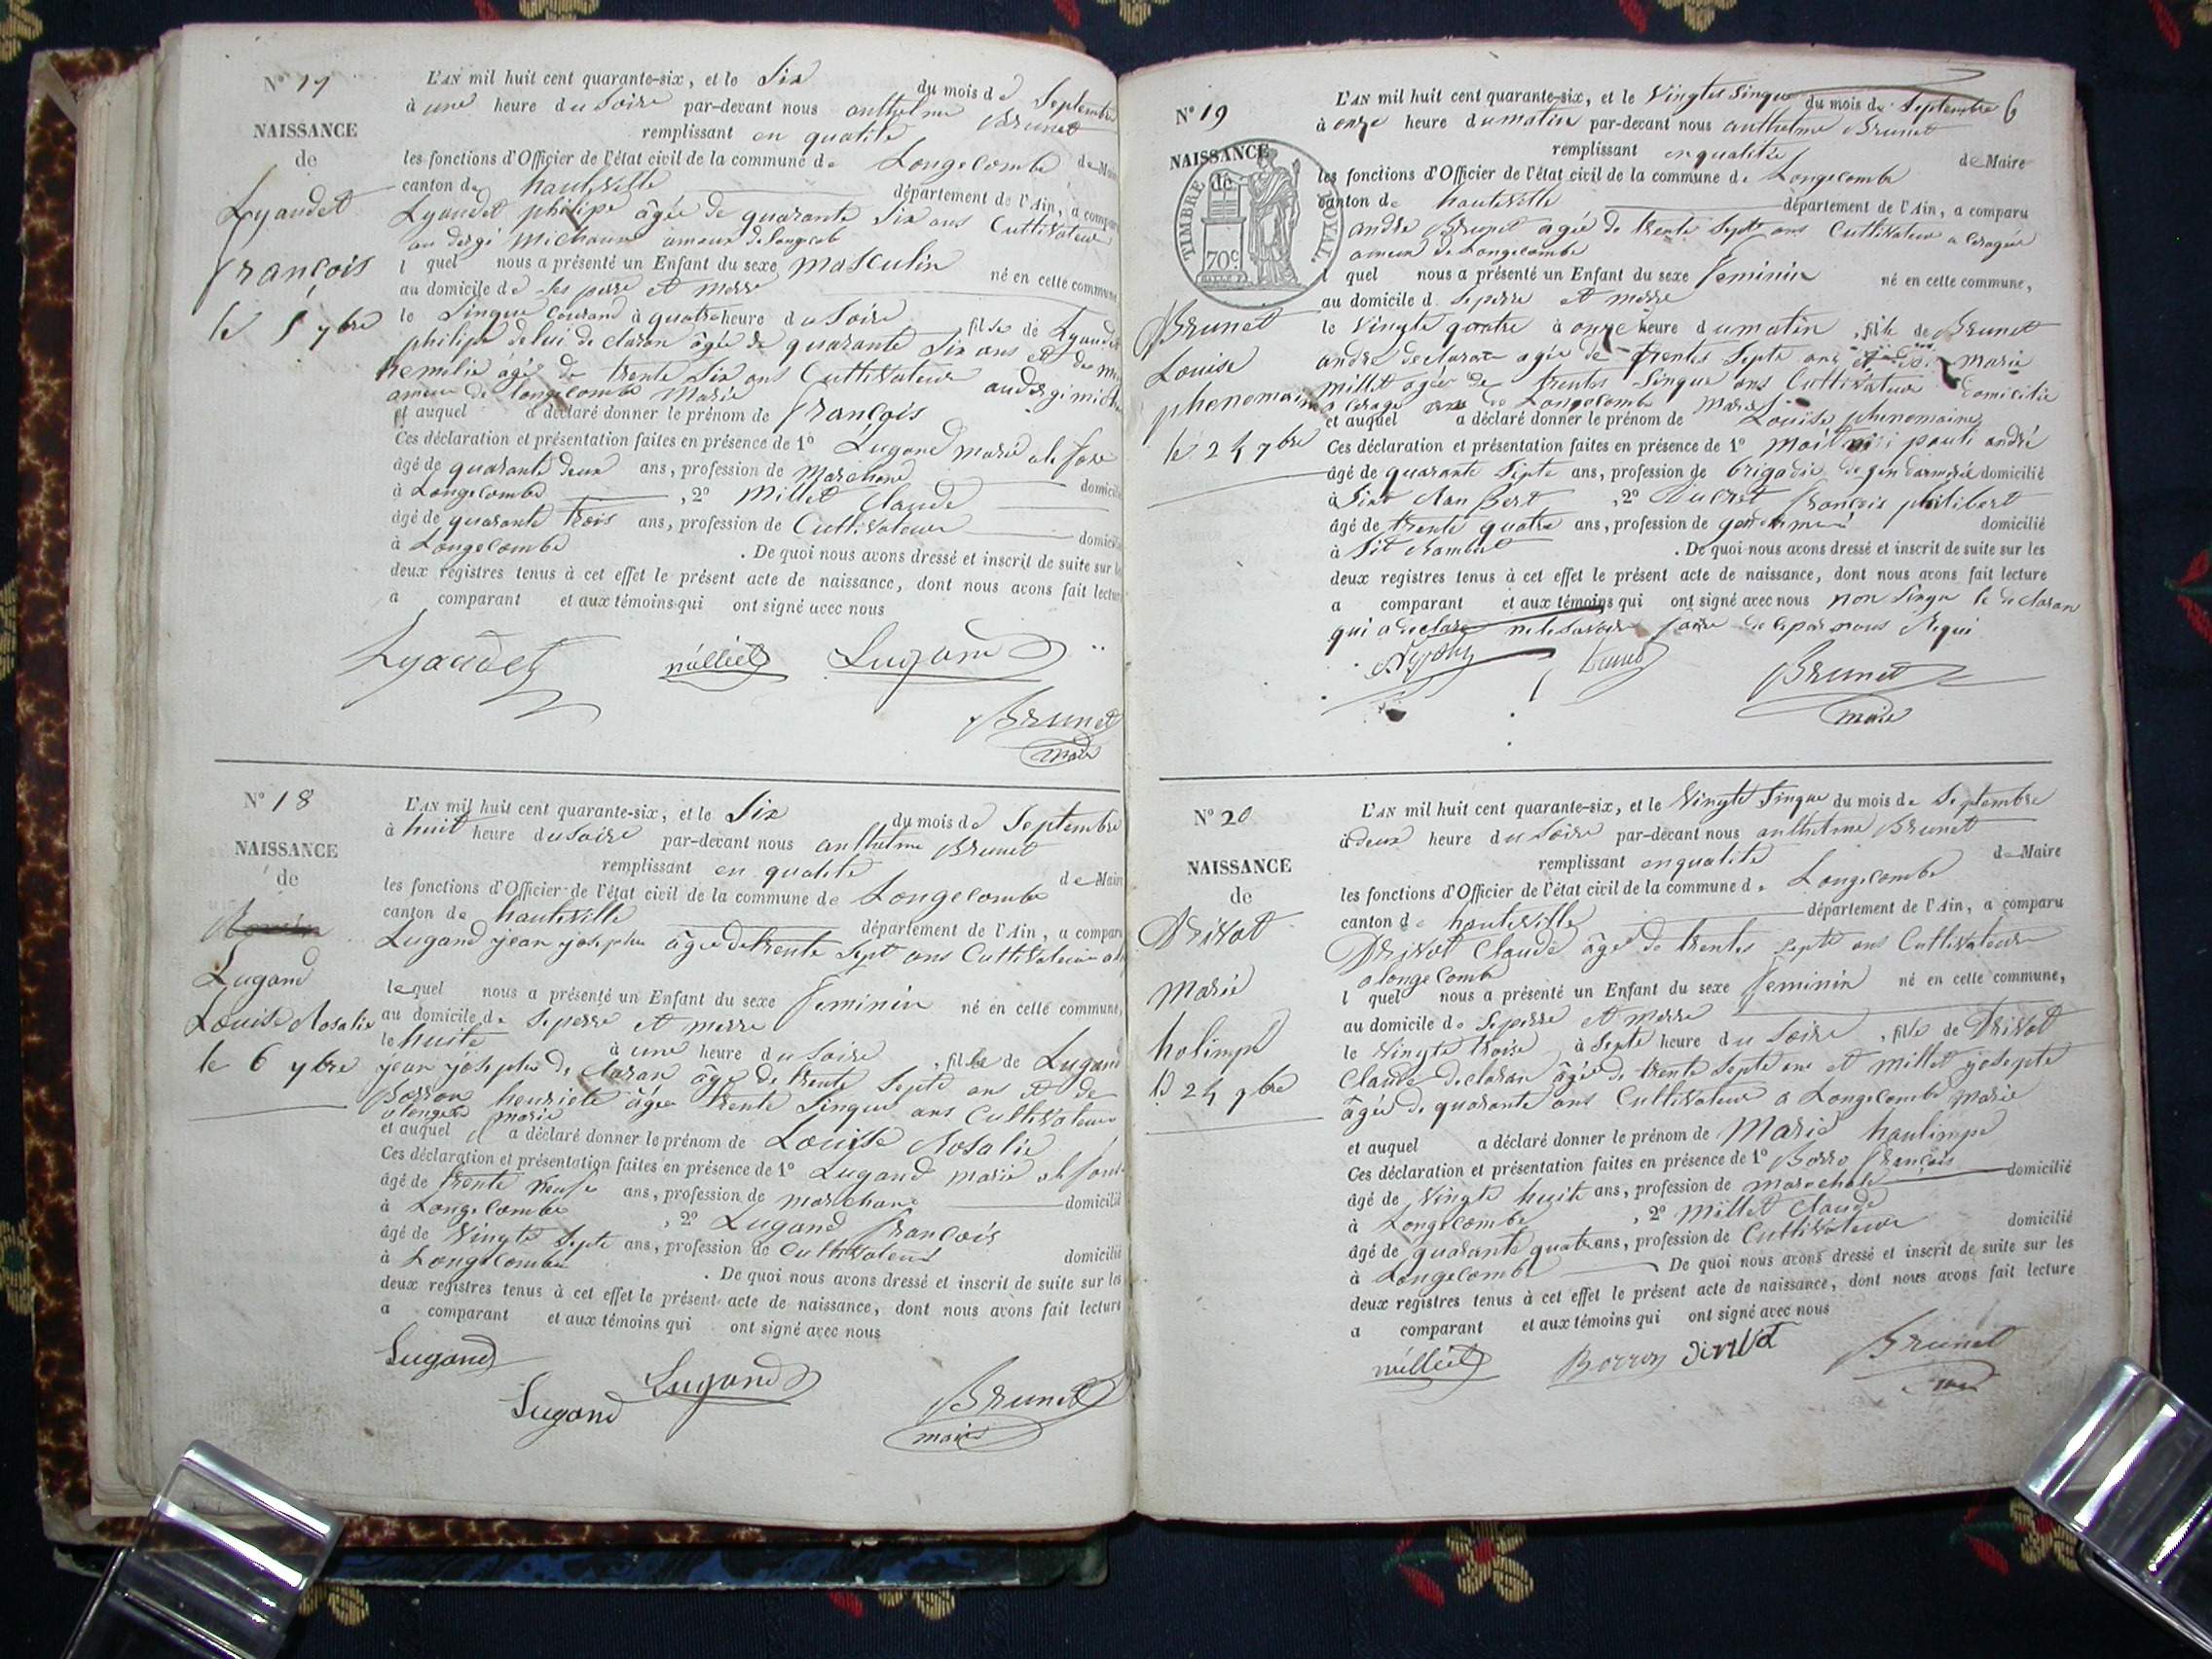 N° 17
NAISSANCE
de
Lyaudet
françois
le 5 7bre
L'AN mil huit cent quarante-six, et le Six du mois de Septembre
à une heure du Soire par-devant nous anthelme Brunet
remplissant en qualité de Maire
les fonctions d'Officier de l'état civil de la commune de Longecombe
canton de hauteville département de l'Ain, a comparu
Lyaudet philipe âgée de quarante Six ans Cuttivateur
l quel nous a présenté un Enfant du sexe masculin né en cette commune
au domicile de ses perre et merre
le Sinque courand à quatre heure du Soire fils de Lyaudet
philipe de lui de claran âgée de quarante Six ans et de
âgée de trente Six ans Cuttivateur
de longecombe Marié
et auquel a déclaré donner le prénom de françois
Ces déclaration et présentation faites en présence de 1° Lugand marie
âgé de quarante deux ans, profession de Marchand domicilié
à Longecombe , 2° Millet Claude
âgé de quarante trois ans, profession de Cuttivateur domicilié
à Longecombe . De quoi nous avons dressé et inscrit de suite sur les
deux registres tenus à cet effet le présent acte de naissance, dont nous avons fait lecture
a comparant et aux témoins qui ont signé avec nous
Lyaudet milliet Lugand
Brunet
maire
N° 18
NAISSANCE
de
Lugand
Louise Rosalie
le 6 7bre
L'AN mil huit cent quarante-six, et le Six du mois de Septembre
à huit heure du Soire par-devant nous anthelme Brunet
remplissant en qualité de Maire
les fonctions d'Officier de l'état civil de la commune de Longecombe
canton de hauteville département de l'Ain, a comparu
Lugand jean josephe âgée de trente Sept ans Cuttivateur
lequel nous a présenté un Enfant du sexe feminin né en cette commune,
au domicile de Se perre et merre
le huite à une heure du Soire , fille de Lugand
jean josephe de claran âge de trente Septe ans et de
Borron henriete âgée trente Sinque ans Cultivateur
a longeco marié
et auquel il a déclaré donner le prénom de Louisse Rosalie
Ces déclaration et présentation faites en présence de 1° Lugand marie
âgé de trente neufe ans, profession de marchand domicilié
à Longecombe , 2° Lugand françois
âgé de Vingte Septe ans, profession de Cuttivateur domicilié
à Longecombe . De quoi nous avons dressé et inscrit de suite sur les
deux registres tenus à cet effet le présent acte de naissance, dont nous avons fait lecture
a comparant et aux témoins qui ont signé avec nous
Lugand
Lugand Lugand
Brunet
maire
6
N° 19
NAISSANCE
de
TIMBRE ROYAL.
70c
Brunet
Louise
phenomaine
le 24 7bre
L'AN mil huit cent quarante-six, et le Vingtes Sinque du mois de Septembre
à onze heure du matin par-devant nous anthelme Brunet
remplissant en qualitée de Maire
les fonctions d'Officier de l'état civil de la commune de Longecombe
canton de hauteville département de l'Ain, a comparu
andre Brunet agée de trente Septe ans Cuttivateur
de Longecombe
l quel nous a présenté un Enfant du sexe feminin né en cette commune,
au domicile d Se perre et merre
le Vingte quatre à onze heure du matin , fille de Brunet
andre de claran agée de trentes Septe ans marie
millet agée de trentes Sinque ans Cuttivateur domicilie
Longecombe marié
et auquel a déclaré donner le prénom de Louise phenomaine
Ces déclaration et présentation faites en présence de 1° paule andré
âgé de quarante Septe ans, profession de brigadie de gendarmerie domicilié
à , 2° Ducret françois philibert
âgé de trente quatre ans, profession de domicilié
à . De quoi nous avons dressé et inscrit de suite sur les
deux registres tenus à cet effet le présent acte de naissance, dont nous avons fait lecture
a comparant et aux témoins qui ont signé avec nous non Singe le de claran
qui a declare ne le Savoire faire de ce par nous Requi
Brunet
maire
N° 20
NAISSANCE
de
Drivot
Marie
holimpe
le 24 7bre
L'AN mil huit cent quarante-six, et le Vingte Sinque du mois de Septembre
à deux heure du Soire par-devant nous anthelme Brunet
remplissant en qualité de Maire
les fonctions d'Officier de l'état civil de la commune de Longecombe
canton de hauteville département de l'Ain, a comparu
Drivot Claude âgé de trentes Septe ans Cultivateur
a longe Combe
l quel nous a présenté un Enfant du sexe feminin né en cette commune,
au domicile de Se perre et merre
le Vingte troise à Septe heure du Soire , fille de Drivot
Claude de claran âgé de trente Septe ans et millet josepte
âgée de quarante ans Cultivateur a Longecombe marié
et auquel a déclaré donner le prénom de Marie haulimpe
Ces déclaration et présentation faites en présence de 1° Borro françois
âgé de Vingte huite ans, profession de marechale domicilié
à Longecombe , 2° Millet Claude
âgé de quarante quatre ans, profession de Cuttivateur domicilié
à Longecombe De quoi nous avons dressé et inscrit de suite sur les
deux registres tenus à cet effet le présent acte de naissance, dont nous avons fait lecture
a comparant et aux témoins qui ont signé avec nous
milliet Borron drivot Brunet